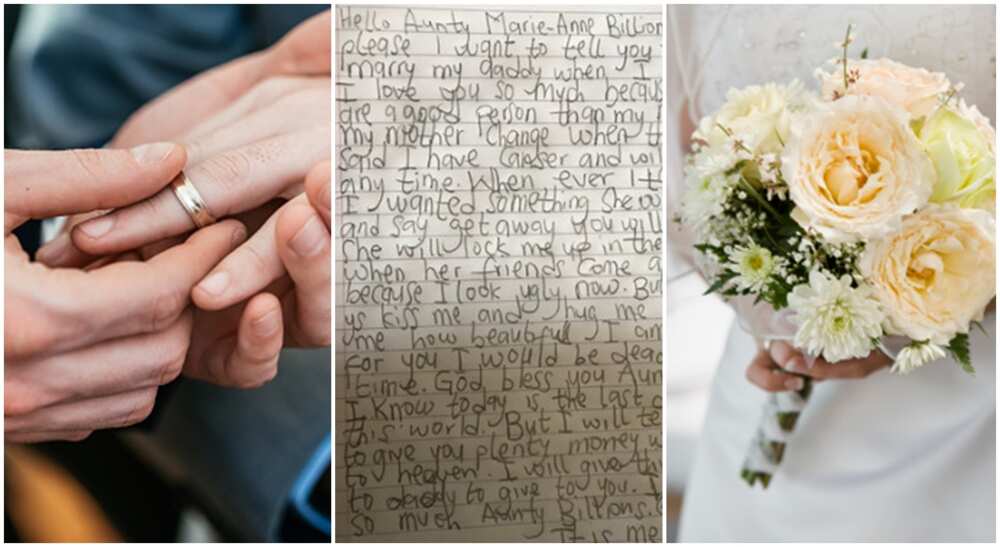 Hello Aunty Marie-Anne Billion
please I want to tell you
marry my daddy when I
I love you so much becaus
are a good person than my
my mother change when t
said I have Canser and will
any time. When ever I t
I wanted something She wo
and say get away you will
She will lock me up in the
when her friends come a
because I look ugly now. Bu
us kiss me and hug me
me how beautfull I am
for you I would be dead
time. God bless you Aun
I know today is the last
this world. But I will te
to give you plenty money w
to heaven. I will give thi
to daddy to give to you. I
so much Aunty Billions.
It is me